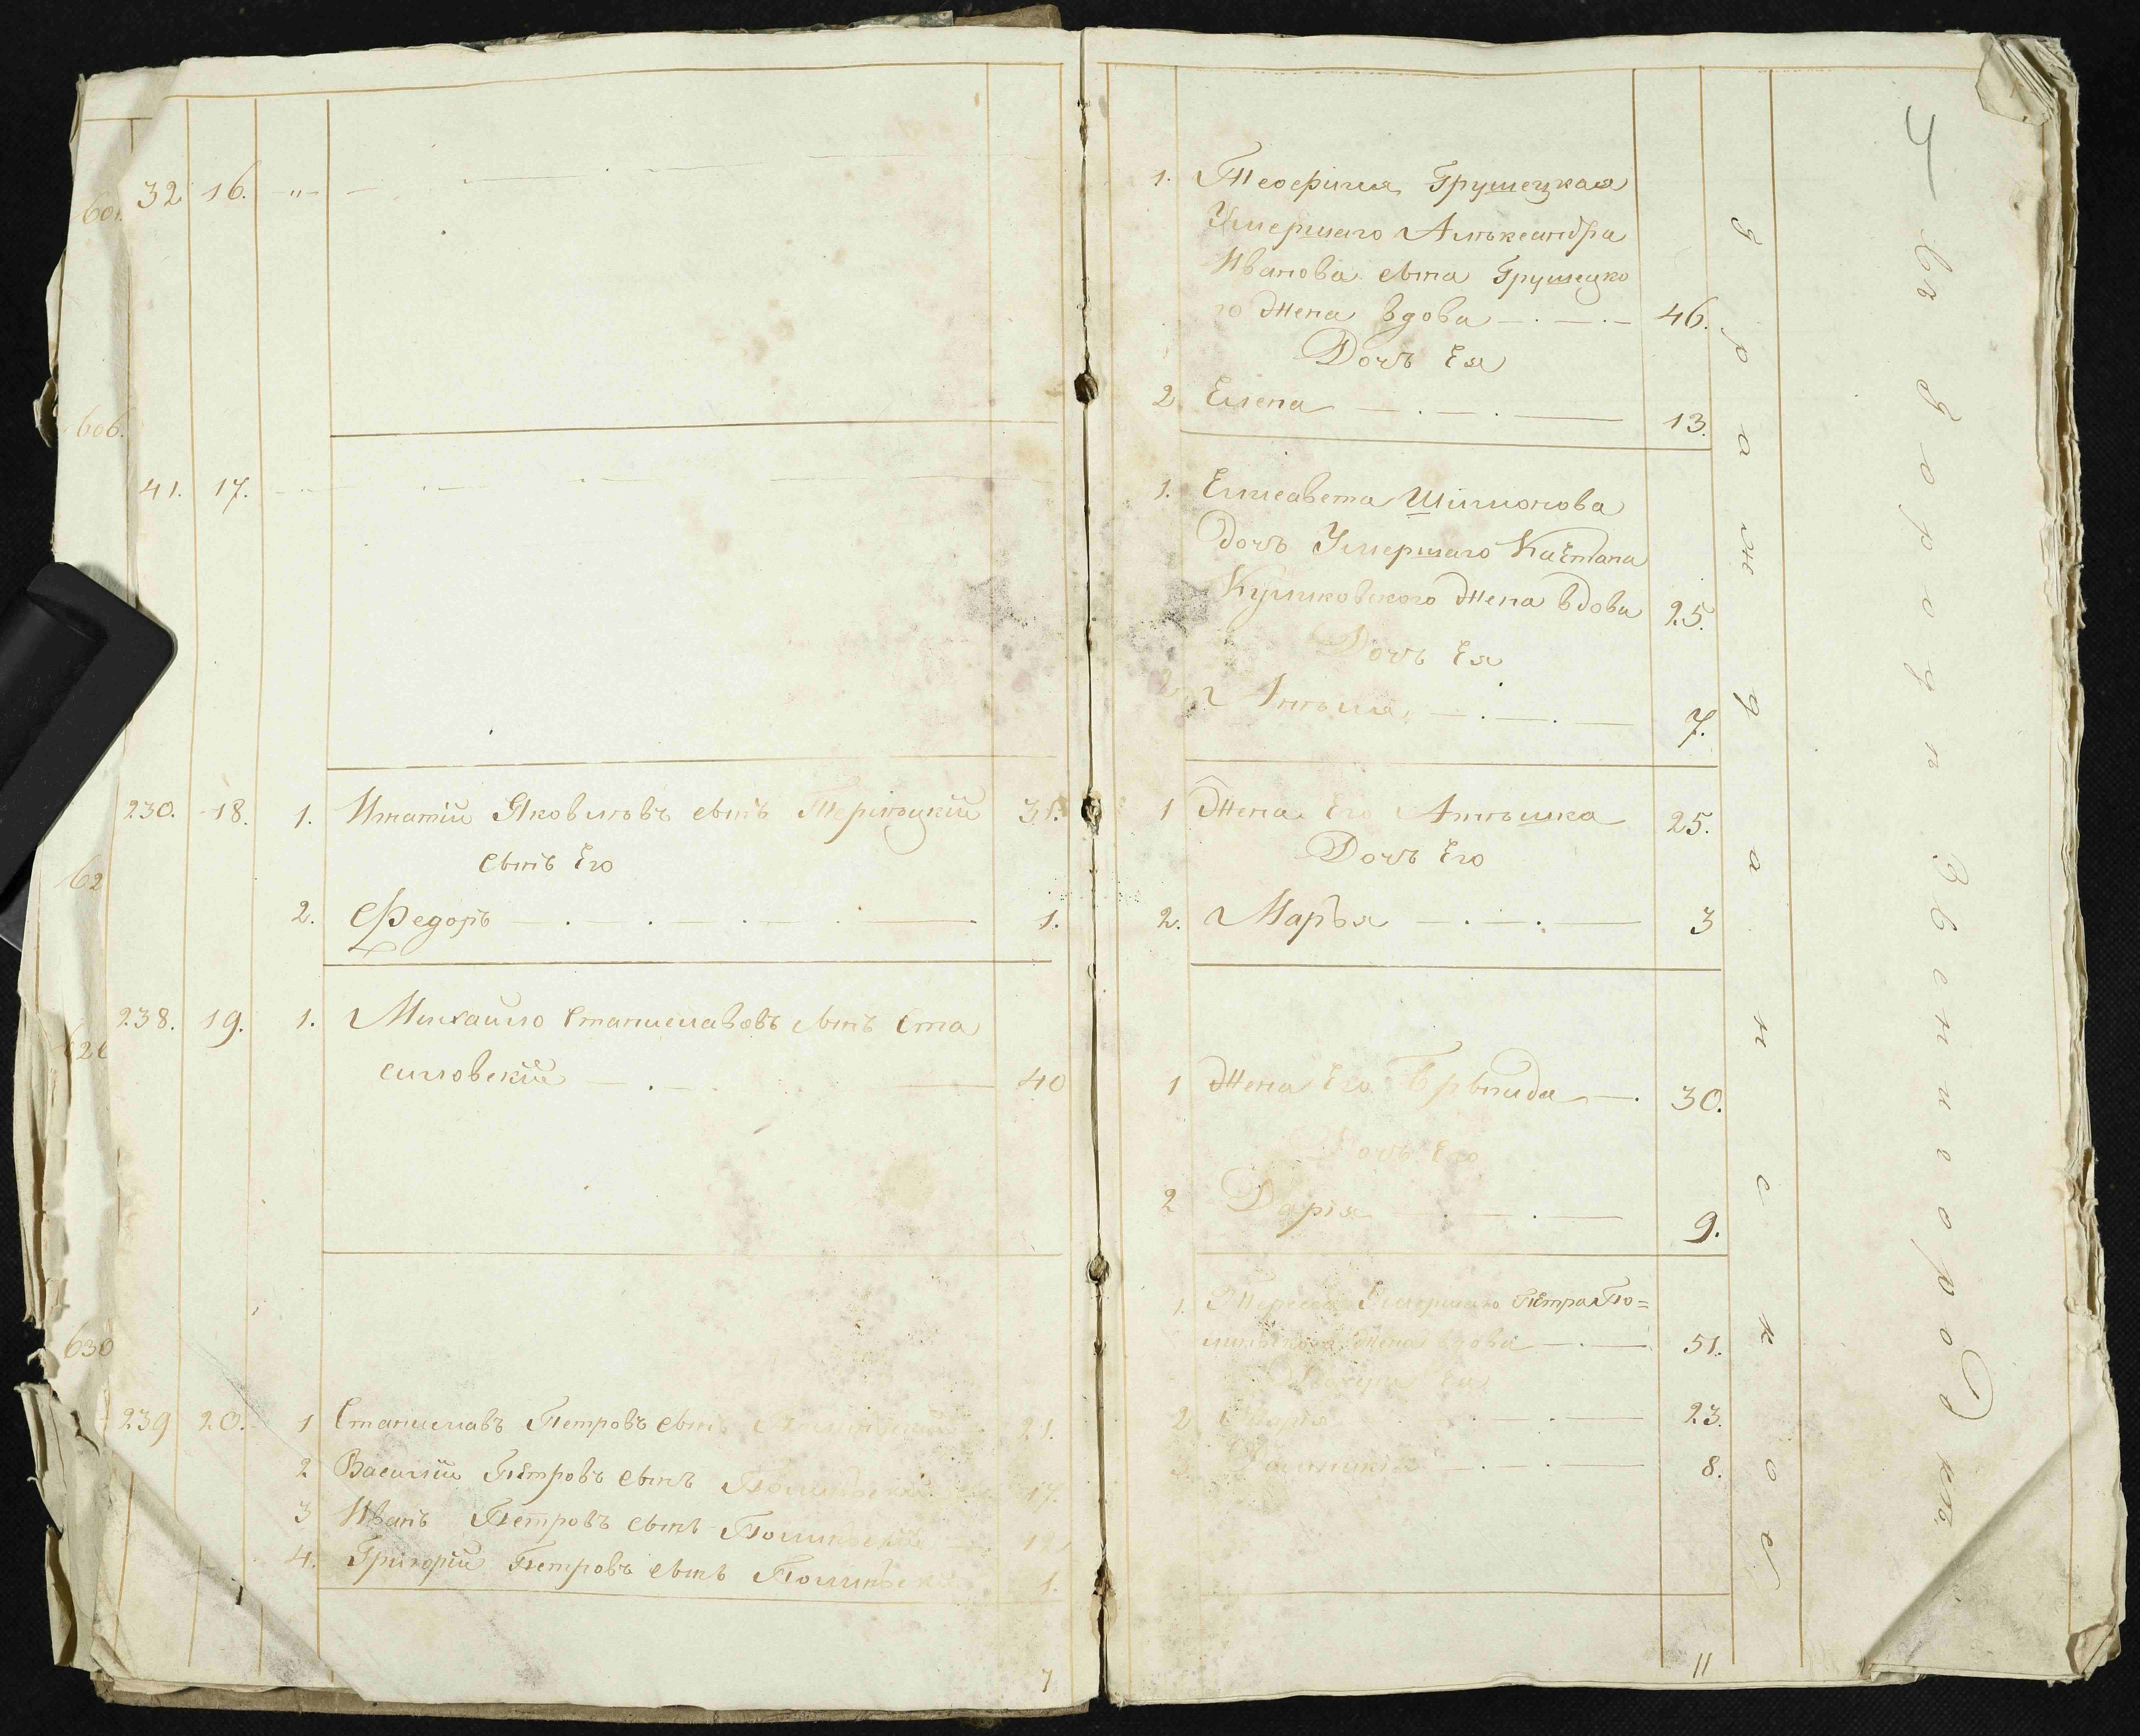 32 16.
1. Теофилия Грушецкая
Умершаго Алѣксандра
Иванова сына Грушецко
го жена вдова 46.
Дочь Ея
2 Елена 13.
41. 17.
1. Елисавета Шимонова
дочь Умершаго Каетана
Кушковского жена вдова 25.
Дочь Ея
7.
230. 18. 1. Игнатий Яковлѣвъ сынъ 31.
сынъ Его
2. Федоръ 1.
1 Жена Его Аннѣшка 25.
Дочь Его
2. Марья 3
238. 19. 1. Михайло Станиславовъ сынъ Ста
силовский 40
1 Жена Его Брыгида 30.
Дочь Его
2 Дарія 9.
1. Умершаго Петра По=
жена вдова 51.
Ея
2 Марія 23.
8.
239 20. 1 Станиславъ Петровъ сынъ 21.
2 Василий Петровъ сынъ 17.
3 Иванъ Петровъ сынъ 12
4. Григорий Петровъ сынъ 1.
7
11
гражданское
въ городѣ Звенигородкѣ.
601.
606.
62
626
630